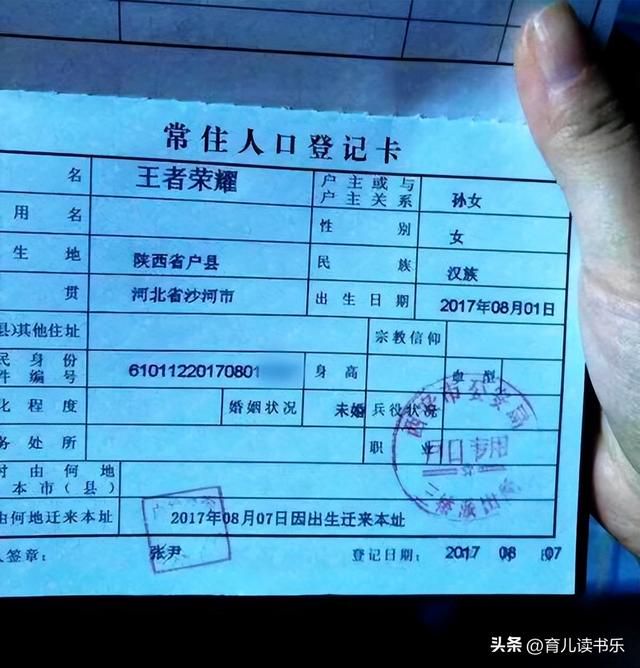 常住人口登记卡
名 王者荣耀 户主或与户主关系 孙女
用名 性别 女
生地 陕西省户县 民族 汉族
贯 河北省沙河市 出生日期 2017年08月01日
县)其他住址 宗教信仰
民身份件编号 61011220170801 身高 血型
化程度 婚姻状况 未婚 兵役状况
务处所 职业
时由何地本市(县)
由何地迁来本址 2017年08月07日因出生迁来本址
人签章: 张尹 登记日期: 2017 08 07
西安市公安局
户口专用
三桥派出所
头条 @育儿读书乐